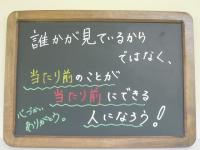 誰かが見ているから
ではなく、
当たり前のことが
当たり前にできる
人になろう!
ありがとう。